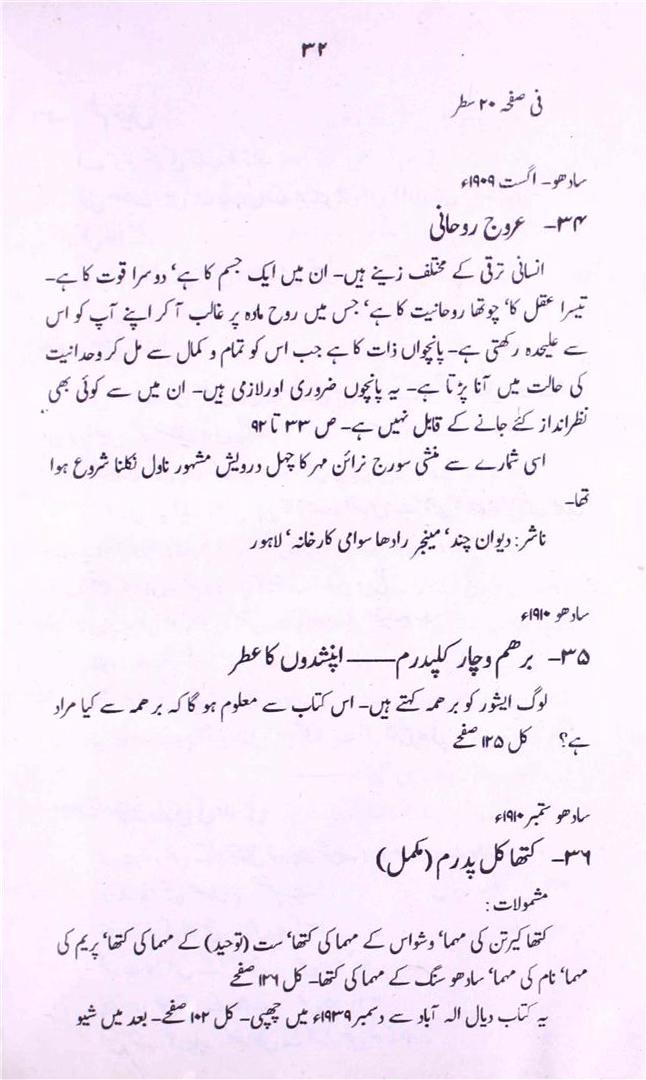 ۳۲
فی صفحہ ۲۰ سطر
سادھو۔ اگست ۱۹۰۹ء
۳۴۔ عروج روحانی
انسانی ترقی کے مختلف زینے ہیں۔ ان میں ایک جسم کا ہے‘ دوسرا قوت کا ہے۔
تیسرا عقل کا‘ چوتھا روحانیت کا ہے‘ جس میں روح مادہ پر غالب آ کر اپنے آپ کو اس
سے علیحدہ رکھتی ہے۔ پانچواں ذات کا ہے جب اس کو تمام و کمال سے مل کر وحدانیت
کی حالت میں آنا پڑتا ہے۔ یہ پانچوں ضروری اور لازمی ہیں۔ ان میں سے کوئی بھی
نظرانداز کئے جانے کے قابل نہیں ہے۔ ص ۳۳ تا ۹۲
اسی شمارے سے منشی سورج نرائن مہر کا چہل درویش مشہور ناول نکلنا شروع ہوا
تھا۔
ناشر: دیوان چند‘ مینجر رادھا سوامی کارخانہ‘ لاہور
سادھو ۱۹۱۰ء
۳۵۔ برھم وچار کلپدرم —— اپنشدوں کا عطر
لوگ ایشور کو برھمہ کہتے ہیں۔ اس کتاب سے معلوم ہو گا کہ برھمہ سے کیا مراد
ہے؟ کل ۱۲۵ صفحے
سادھو ستمبر ۱۹۱۰ء
۳۶۔ کتھا کل پدرم (مکمل)
مشمولات:
کتھا کیرتن کی مہما‘ وشواس کے مہما کی کتھا‘ ست (توحید) کے مہما کی کتھا‘ پریم کی
مہما‘ نام کی مہما‘ سادھو سنگ کے مہما کی کتھا۔ کل ۱۲۶ صفحے
یہ کتاب دیال الہ آباد سے دسمبر ۱۹۳۹ء میں چھپی۔ کل ۱۰۲ صفحے۔ بعد میں شیو